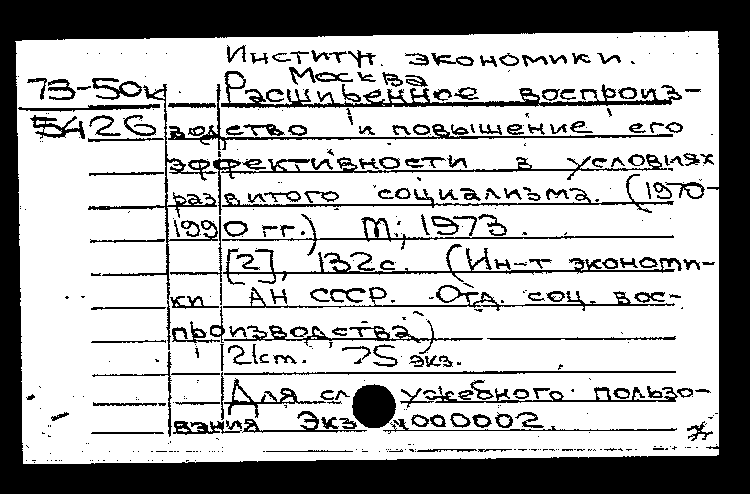 Институт экономики.
Москва
73-50к Расширенное воспроиз-
5426 водство и повышение его
эффективности в условиях
развитого социализма. (1970-
1990 гг.) М., 1973.
[2], 132с. (Ин-т экономи-
ки АН СССР. Отд. соц. вос-
производства)
21см. 75 экз.
Для служебного пользо-
вания Экз №000002.